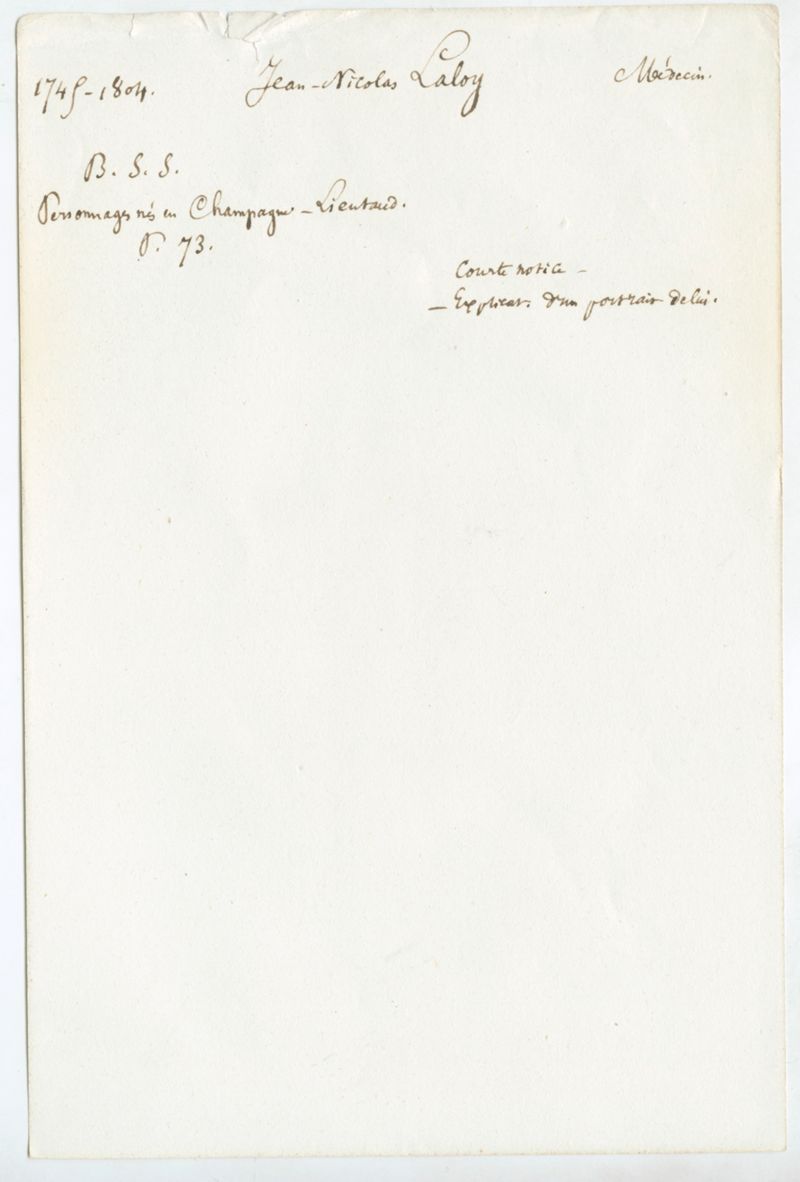 1745-1804. Jean-Nicolas Laloy Médecin.
B. S. S.
Personnages nés en Champagne - Lieutaud.
P. 73.
Courte notice -
- Explicat. d'un portrait de lui.